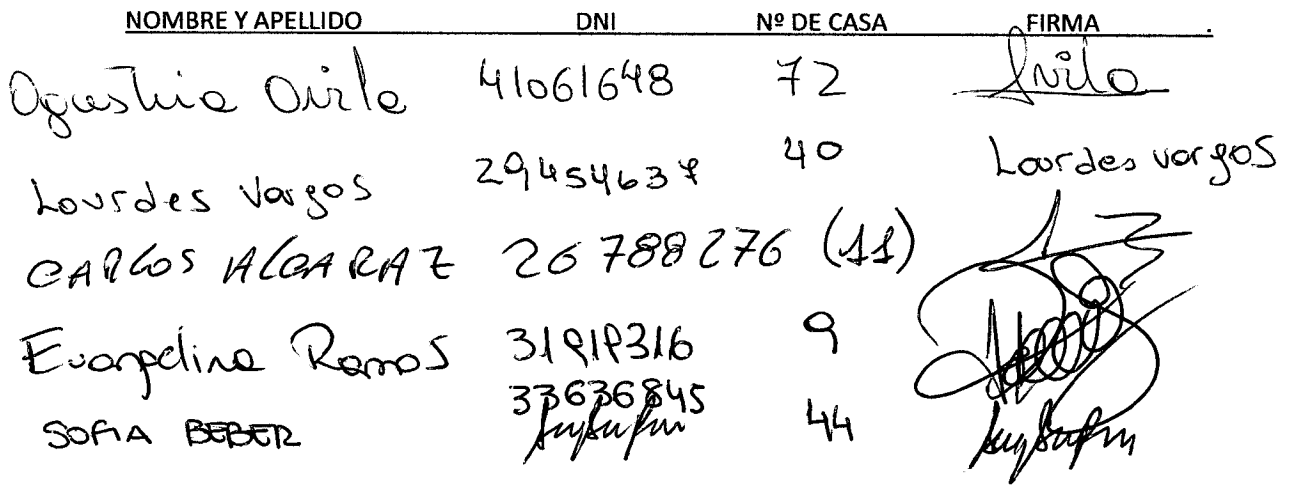 NOMBRE Y APELLIDO DNI Nº DE CASA FIRMA
Agustina Avila 41061648 72 Avila
Lourdes Vargas 29454637 40 Lourdes vargas
CARLOS ALCARAZ 26788276 (11)
Evangelina Ramos 31919316 9
SOFIA BEBER 33636845 44